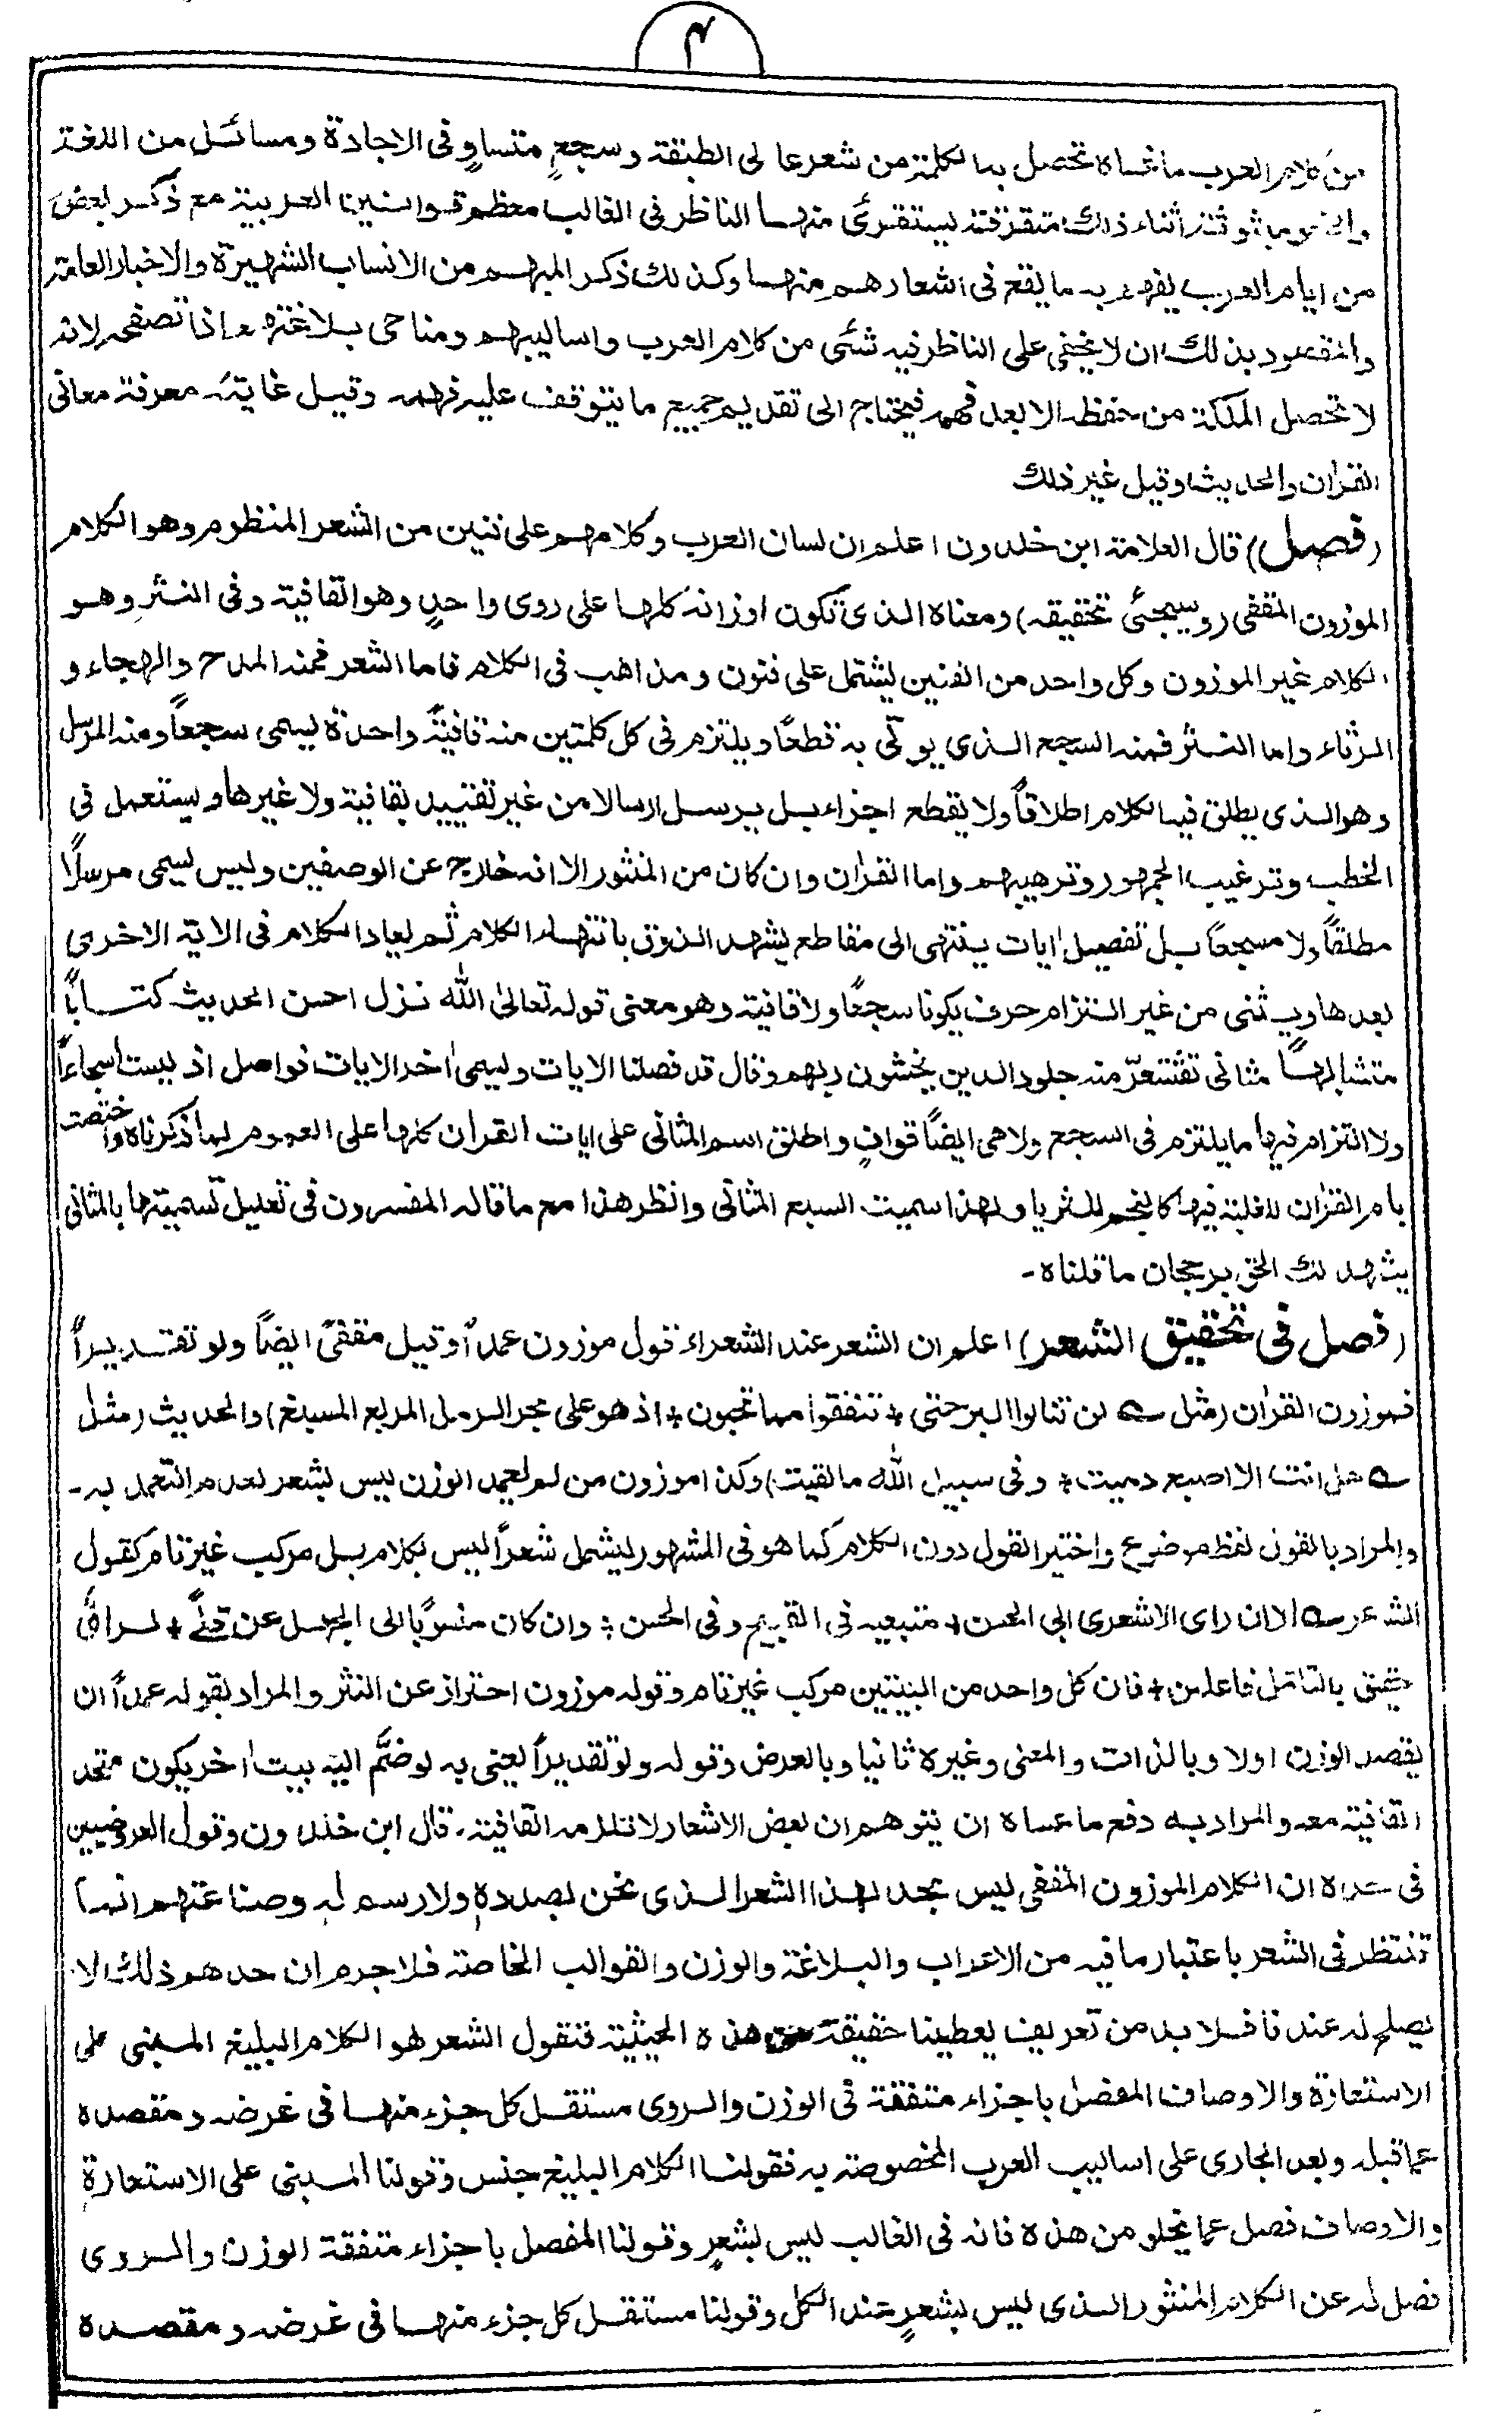 ٣
من كلام العرب ما عساه تحصل به الكلمة من شعر عالى الطبقة وسجع متساوٍ فى الاجادة ومسائل من اللغة
والنحو مبثوثة اثناء ذلك متفرقة يستقرئ منها الناظر فى الغالب معظم قوانين العربية مع ذكر بعض
من ايام العرب يفهم به ما يقع فى اشعارهم منها وكذلك ذكر المهم من الانساب الشهيرة والاخبار العامة
والمقصود بذلك ان لا يخفى على الناظر فيه شئى من كلام العرب واساليبهم ومناحى بلاغتهم اذا تصفحه لانه
لا تحصل الملكة من حفظه الا بعد فهمه فيحتاج الى تقديم جميع ما يتوقف عليه فهمه وقيل غايته معرفة معانى
القرٰان والحديث وقيل غير ذلك
(فصل) قال العلامة ابن خلدون اعلم ان لسان العرب وكلامهم على فنين من الشعر المنظوم وهو الكلام
الموزون المقفى (وسيجئ تحقيقه) ومعناه الذى تكون اوزانه كلها على روى واحدٍ وهو القافية وفى النثر وهو
الكلام غير الموزون وكل واحد من الفنين يشتمل على فنون ومذاهب فى الكلام فاما الشعر فمنه المدح والهجاء و
الرثاء واما النثر فمنه السجع الذى يوتى به قطعًا ويلتزم فى كل كلمتين منه قافيةً واحدة يسمى سجعاً ومنه المرسل
وهو الذى يطلق فيه الكلام اطلاقاً ولا يقطع اجزاء بل يرسل ارسالا من غير تقييد بقافية ولا غيرها ويستعمل فى
الخطب وترغيب الجمهور وترهيبهم واما القرٰان وان كان من المنثور الا انه خارج عن الوصفين وليس يسمى مرسلًا
مطلقاً ولا مسجعاً بل تفصيل اٰيات ينتهى الى مقاطع يشهد الذوق بانتهاء الكلام ثم يعاد الكلام فى الاية الاخرى
بعدها ويثنى من غير التزام حرف يكون سجعًا ولا قافية وهو معنى قوله تعالىٰ الله نزل احسن الحديث كتاباً
متشابهاً مثانى تقشعرّ منه جلود الذين يخشون ربهم وقال قد فصلنا الايات ويسمى اٰخر الايات فواصل اذ ليست اسجاعاً
ولا التزام فيها ما يلتزم فى السجع ولا هى ايضاً قوافٍ واطلق اسم المثانى على ايات القران كلها على العموم لما ذكرناه واختصت
بام القرٰان للغلبة فيها كالنجم للثريا ولهذا سميت السبع المثانى وانظر هذا مع ما قاله المفسرون فى تعليل تسميتها بالمثانى
يشهد لك الحق برجحان ما قلناه -
(فصل فى تحقيق الشعر) اعلم ان الشعر عند الشعراء قول موزون عمداً وقيل مقفىً ايضاً ولو تقديراً
فموزون القرٰان (مثل ؎ لن تنالوا البر حتى + تنفقوا مما تحبون + اذ هو على بحر الرمل المربع المسبغ) والحديث (مثل
؎ هل انت الا اصبع دميت + وفى سبيل اللّٰه ما لقيت) وكذا موزون من لم يعمد الوزن ليس بشعر لعدم التعمد به -
والمراد بالقول لفظ موضوع واختير القول دون الكلام كما هو فى المشهور ليشمل شعراً ليس بكلام بل مركب غير تام كقول
الشاعر ؎ الا ان راى الاشعرى ابى الحسن + متبعيه فى القبيح وفى الحسن + وان كان منسوبًا الى الجهل عن + لراى
حقيق بالتامل فاعلمن + فان كل واحد من البيتين مركب غير تام وقوله موزون احتراز عن النثر والمراد بقوله عمداً ان
يقصد الوزن اولا وبالذات والمعنى وغيره ثانيا وبالعرض وقوله ولو تقديراً يعنى به لو ضمّ اليه بيت اٰخر يكون متحد
القافية معه والمراد به دفع ما عساه ان يتوهم ان بعض الاشعار لا تلزمه القافية. قال ابن خلدون وقول العروضيين
فى حده ان الكلام الموزون المقفى ليس بحد لهذا الشعر الذى نحن بصدده ولا رسم له وصناعتهم انما
تنتظر فى الشعر باعتبار ما فيه من الاعراب والبلاغة والوزن والقوالب الخاصة فلا جرم ان حدهم ذلك لا
يصلح له عندنا فلا بد من تعريف يعطينا حقيقة من هذه الحيثية فنقول الشعر هو الكلام البليغ المبنى على
الاستعارة والاوصاف المفصل باجزاء متفقة فى الوزن والروى مستقل كل جزء منها فى غرضه ومقصده
عما قبله وبعده الجارى على اساليب العرب المخصوصة به فقولنا الكلام البليغ جنس وقولنا المبنى على الاستعارة
والاوصاف فصل عما يخلو من هذه فانه فى الغالب ليس بشعرٍ وقولنا المفصل باجزاء متفقة الوزن والروى
فصل له عن الكلام المنثور الذى ليس بشعرٍ عند الكل وقولنا مستقل كل جزء منها فى غرضه ومقصده